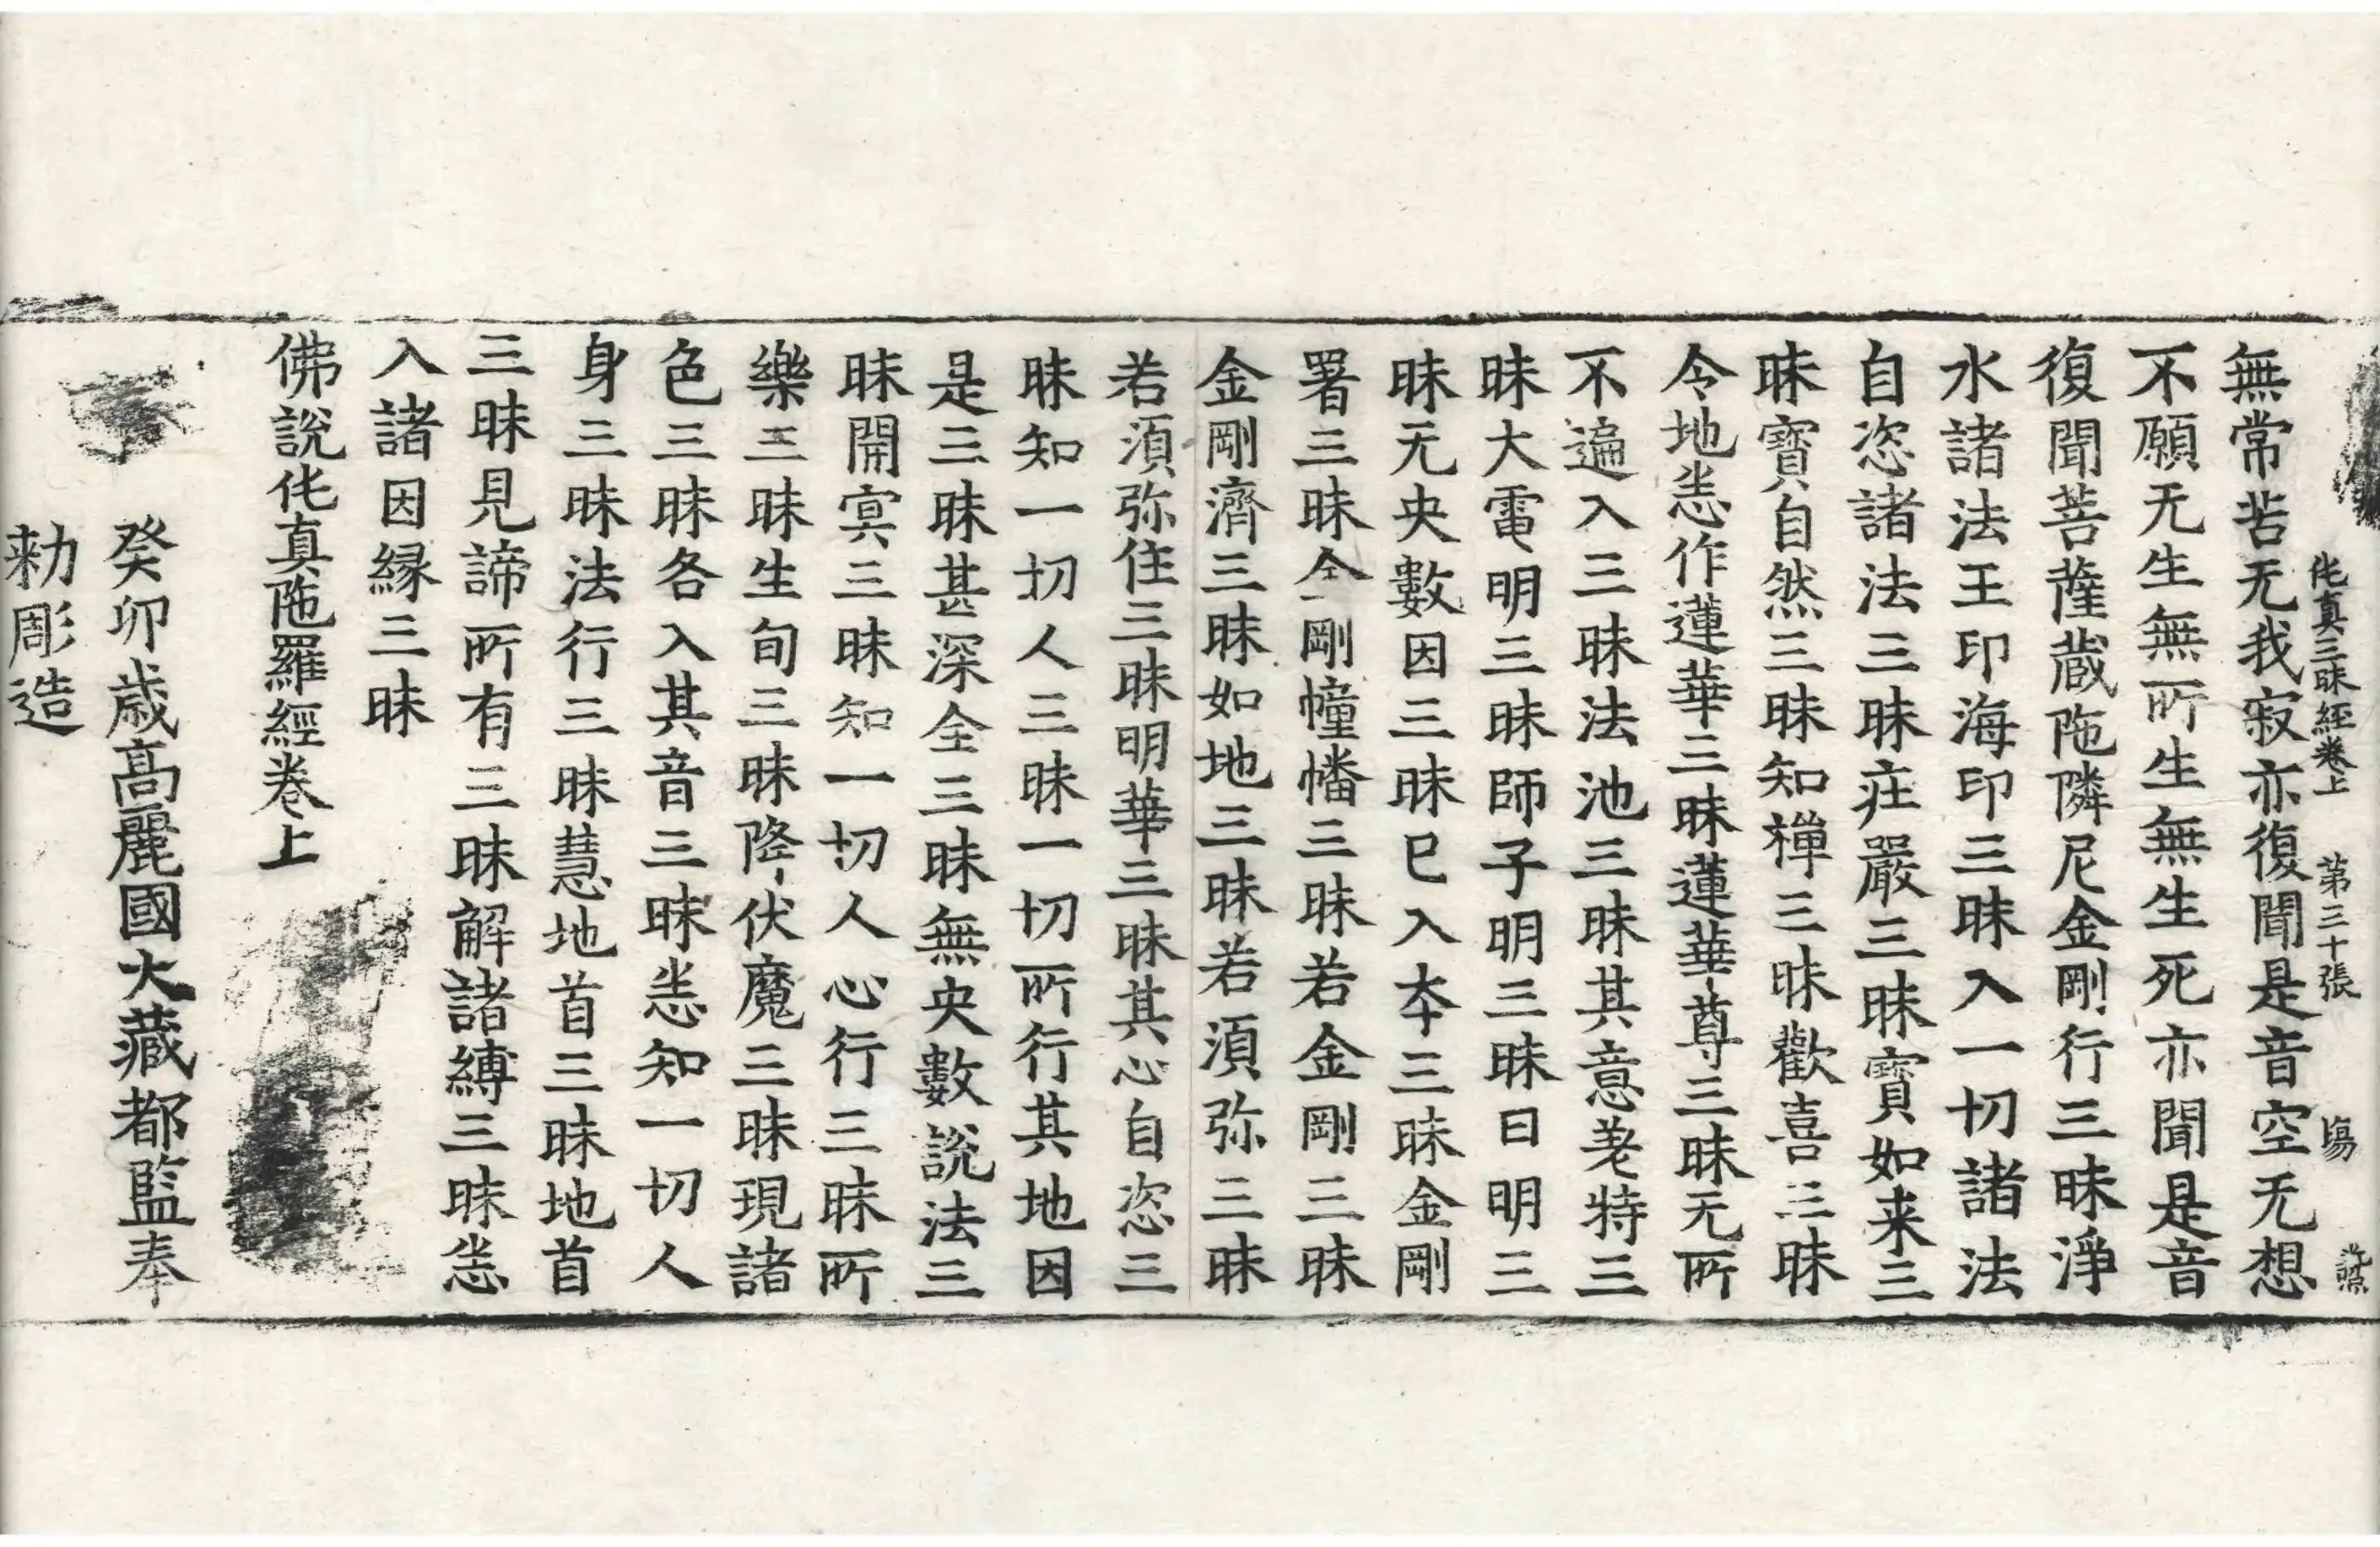 佗真三昧經卷上 第三十張 塲
無常苦无我寂亦復聞是音空无想
不願无生無所生無生死亦聞是音
復聞菩薩蔵陁隣尼金剛行三昧淨
水諸法王印海印三昧入一切諸法
自恣諸法三昧庄嚴三昧寶如来三
昧寶自然三昧知禪三昧歡喜三昧
令地恙作蓮華三昧蓮華尊三昧无所
不遍入三昧法池三昧其意老特三
昧大電明三昧師子明三昧日明三
昧无央數因三昧巳入夲三昧金剛
署三昧全剛幢幡三昧若金剛三昧
金剛濟三昧如地三昧若湏弥三昧
若湏弥住三昧明華三昧其心自恣三
昧知一切人三昧一切所行其地因
是三昧甚深全三昧無央數說法三
昧開㝠三昧知一切人心行三昧所
樂三昧生旬三昧降伏魔三昧現諸
色三昧各入其音三昧恙知一切人
身三昧法行三昧慧地首三昧地首
三昧見諦所有三昧解諸縛三昧恙
入諸因緣三昧
佛說佗真陁羅經卷上
癸卯歳髙麗國大藏都監奉
勑彫造